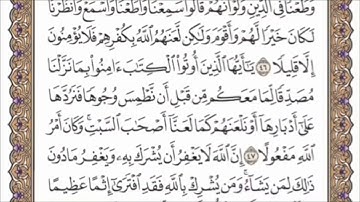 وَطَعْنًا فِي الدِّينِ وَلَوْ أَنَّهُمْ قَالُوا سَمِعْنَا وَأَطَعْنَا وَاسْمَعْ وَانظُرْنَا
لَكَانَ خَيْرًا لَّهُمْ وَأَقْوَمَ وَلَٰكِن لَّعَنَهُمُ اللَّهُ بِكُفْرِهِمْ فَلَا يُؤْمِنُونَ
إِلَّا قَلِيلًا ٤٦ يَٰأَيُّهَا الَّذِينَ أُوتُوا الْكِتَٰبَ ءَامِنُوا بِمَا نَزَّلْنَا
مُصَدِّقًا لِّمَا مَعَكُم مِّن قَبْلِ أَن نَّطْمِسَ وُجُوهًا فَنَرُدَّهَا
عَلَىٰ أَدْبَارِهَا أَوْ نَلْعَنَهُمْ كَمَا لَعَنَّا أَصْحَٰبَ السَّبْتِ ۚ وَكَانَ أَمْرُ
اللَّهِ مَفْعُولًا ٤٧ إِنَّ اللَّهَ لَا يَغْفِرُ أَن يُشْرَكَ بِهِ وَيَغْفِرُ مَا دُونَ
ذَٰلِكَ لِمَن يَشَاءُ ۚ وَمَن يُشْرِكْ بِاللَّهِ فَقَدِ افْتَرَىٰ إِثْمًا عَظِيمًا